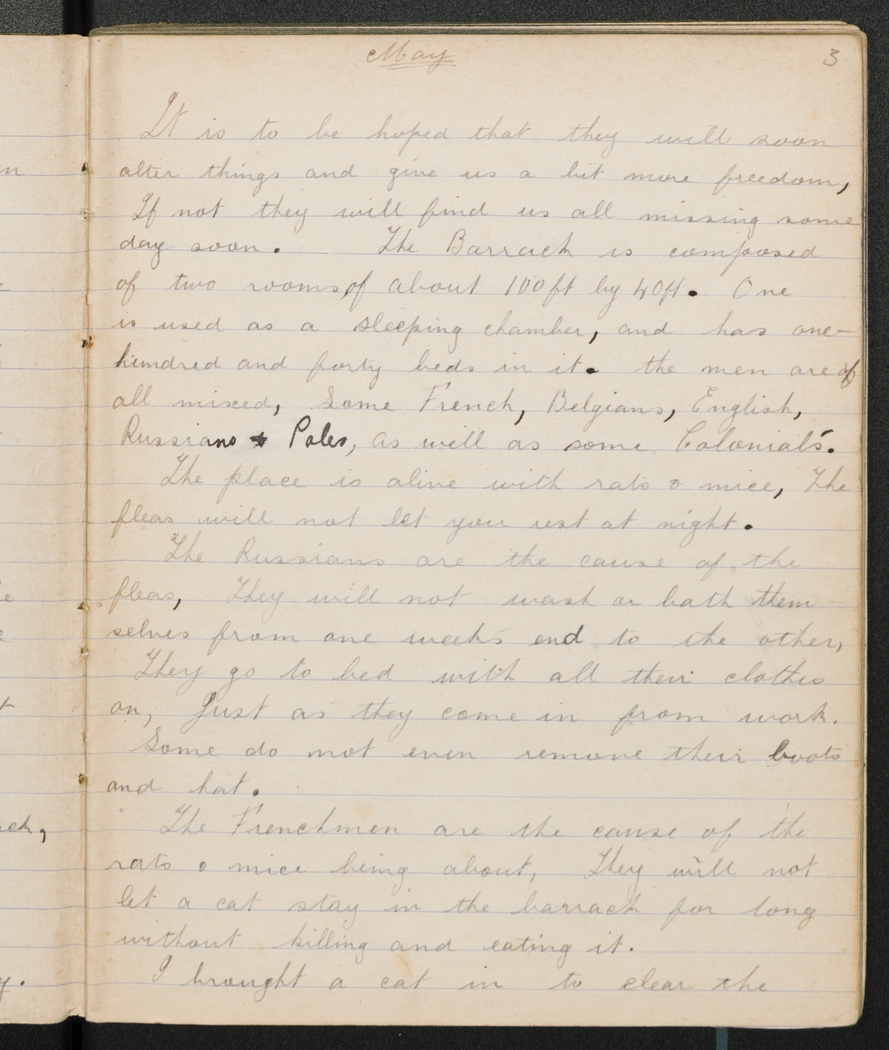 May
3
It is to be hoped that they will soon
alter things and give us a bit more freedom,
If not they will find us all missing some
day soon. The Barrack is composed
of two rooms of about 100ft by 40ft. One
is used as a sleeping chamber, and has one-
hundred and forty beds in it. the men are of
all mixed, Some French, Belgians, English,
Russians & Poles, as well as some Colonials.
The place is alive with rats & mice, The
fleas will not let you rest at night.
The Russians are the cause of the
fleas, They will not wash or bath them-
selves from one weeks end to the other,
They go to bed with all their clothes
on, Just as they come in from work.
Some do not even remove their boots
and hat.
The Frenchmen are the cause of the
rats & mice being about, They will not
let a cat stay in the barrack for long
without killing and eating it.
I brought a cat in to clear the